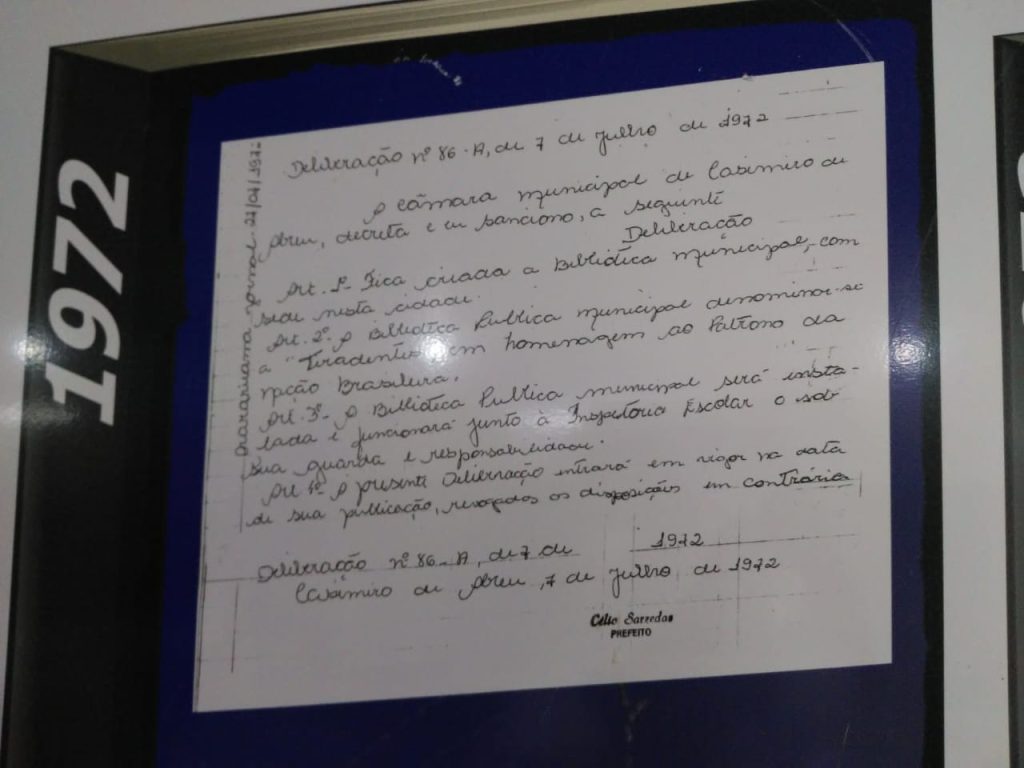 1972
Deliberação nº 86-A, de 7 de julho de 1972
A Câmara Municipal de Casimiro de
Abreu, decreta e eu sanciono, a seguinte
Deliberação
Art. 1º Fica criada a Biblioteca Municipal, com
sede nesta cidade.
Art. 2º. A Biblioteca Publica Municipal denominar-se
a "Tiradentes" em homenagem ao Patrono da
nação Brasileira.
Art. 3º - A Biblioteca Publica Municipal será insta-
lada e funcionará junto à Inspetoria Escolar o sob
sua guarda e responsabilidade.
Art 4º A presente Deliberação entrará em vigor na data
de sua publicação, revogados os disposições em contrário
Deliberação nº 86-A, de 7 de 1972
Casimiro de Abreu, 7 de julho de 1972
Célio Sarzedas
PREFEITO